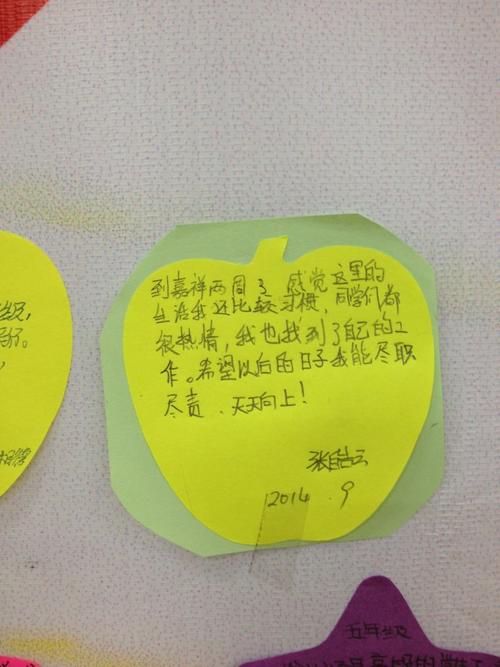 到嘉祥两周了 感觉这里的
生活我还比较习惯,同学们都
很热情,我也找到了自己的工
作。希望以后的日子我能尽职
尽责、天天向上!
张皓云
2014.9
五年级